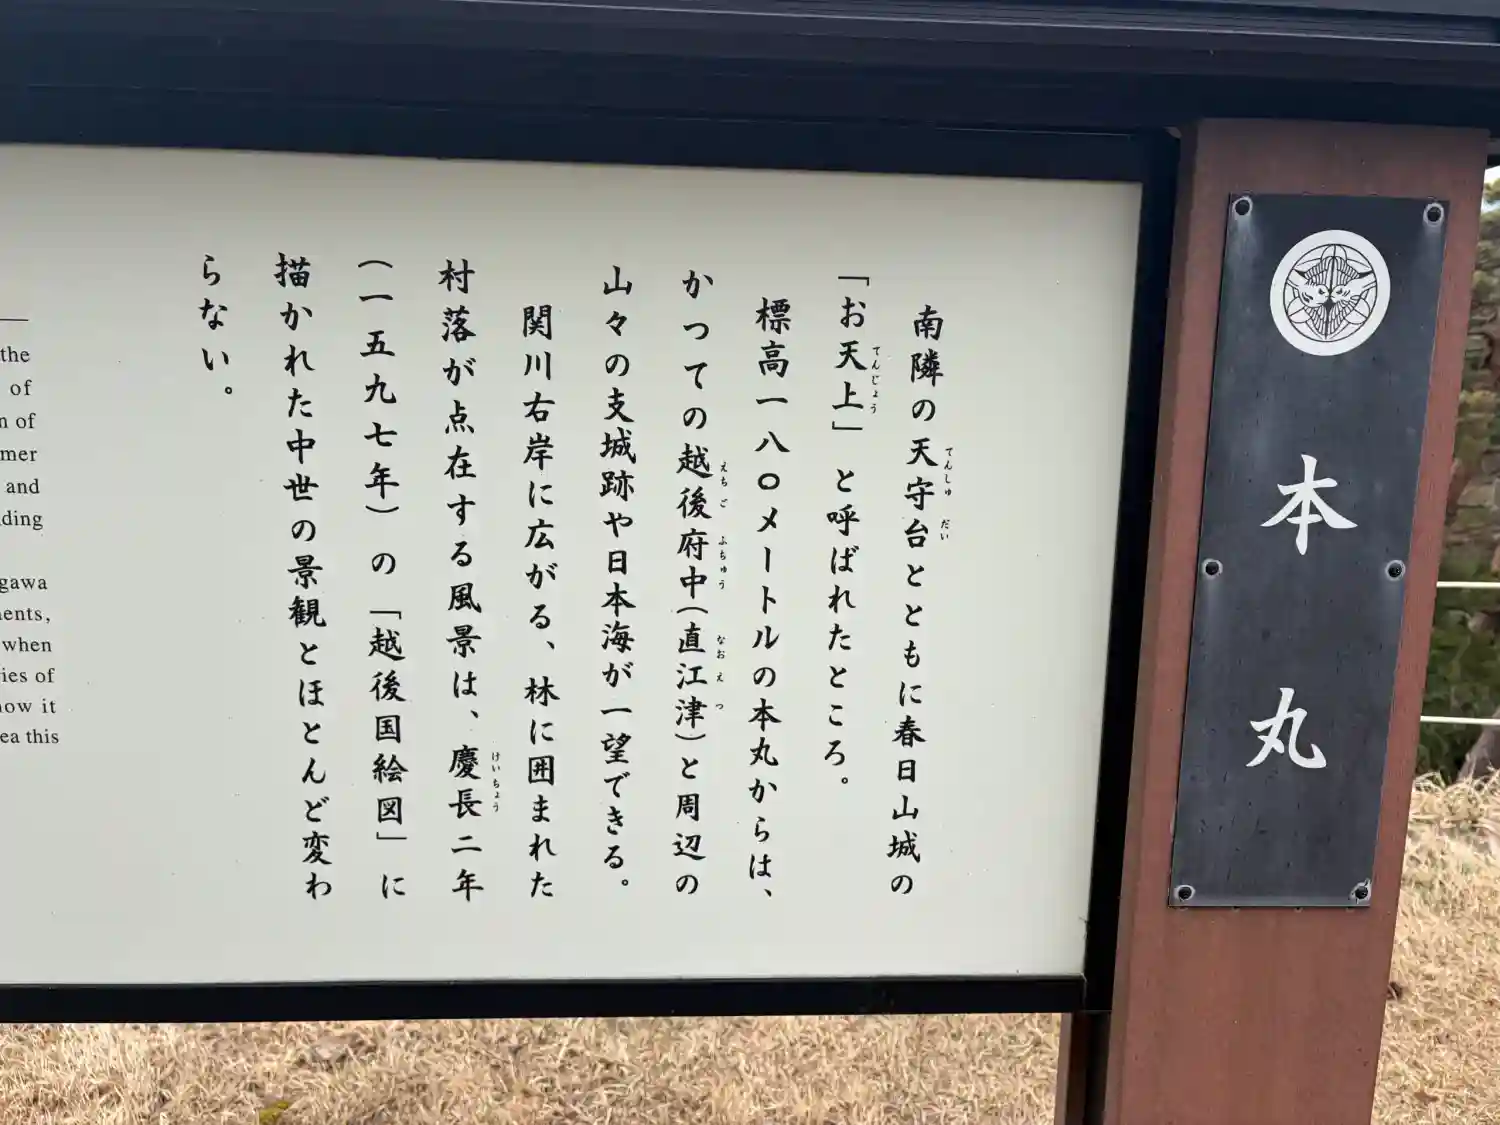 本丸
南隣の天守台とともに春日山城の
てんしゅ だい
「お天上」と呼ばれたところ。
てんじょう
標高一八〇メートルの本丸からは、
かつての越後府中(直江津)と周辺の
えちご ふちゅう なおえつ
山々の支城跡や日本海が一望できる。
関川右岸に広がる、林に囲まれた
村落が点在する風景は、慶長二年
けいちょう
(一五九七年)の「越後国絵図」に
描かれた中世の景観とほとんど変わ
らない。
the
of
n of
mer
and
ding
gawa
ents,
when
ies of
how it
ea this